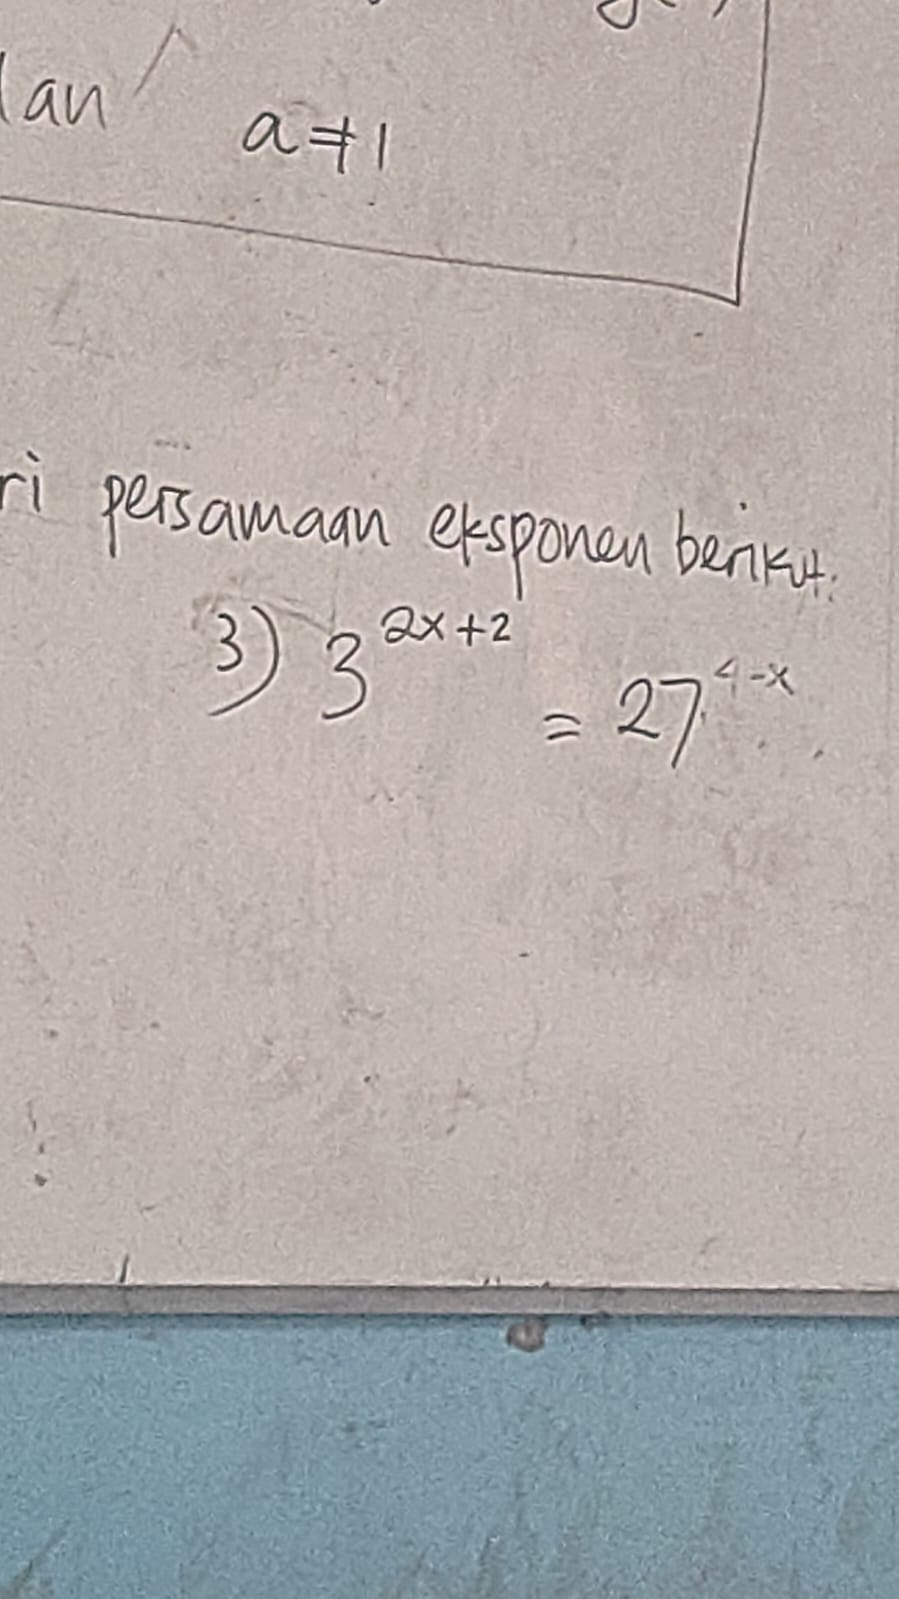 dan a ≠ 1
persamaan eksponen berikut.
3) 3^{2x+2} = 27^{4-x}